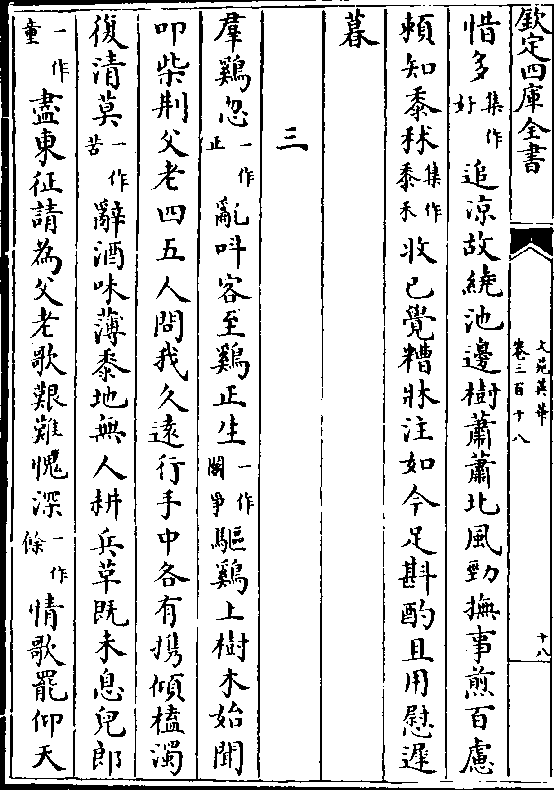 欽定四庫全書
文苑英華
卷三百十八
十八
惜多集作好追涼故繞池邊樹蕭蕭北風勁撫事煎百慮
頼知黍秫集作黍禾收已覺糟牀注如今足斟酌且用慰遲
暮
三
羣鷄忽一作正亂呌客至鷄正生一作闘爭驅鷄上樹木始聞
叩柴荆父老四五人問我久遠行手中各有携傾榼濁
復清莫一作苦辭酒味薄黍地無人耕兵草既未息兒郎
一作童盡東征請為父老歌艱難愧深一作餘情歌罷仰天